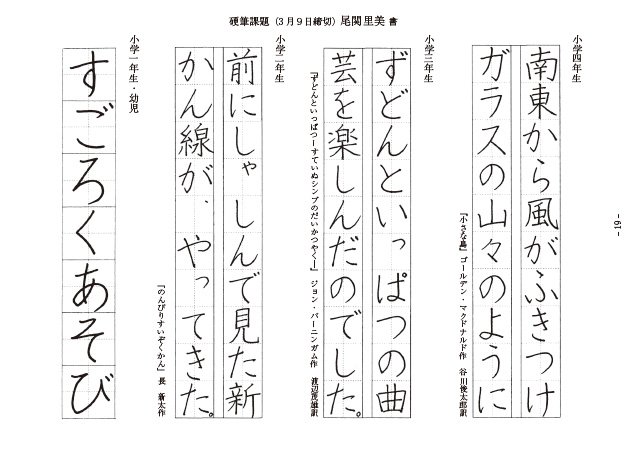 硬筆課題（3月9日締切）尾関里美 書
小学四年生
南東から風がふきつけ
ガラスの山々のように
『小さな島』ゴールデン・マクドナルド作 谷川俊太郎訳
小学三年生
ずどんといっぱつの曲
芸を楽しんだのでした。
『ずどんといっぱつーすていぬシンプのだいかつやくー』 ジョン・バーニンガム作 渡辺茂雄訳
小学二年生
前にしゃしんで見た新
かん線が、やってきた。
『のんびりすいぞくかん』 長 新太作
小学一年生・幼児
すごろくあそび
- 19 -